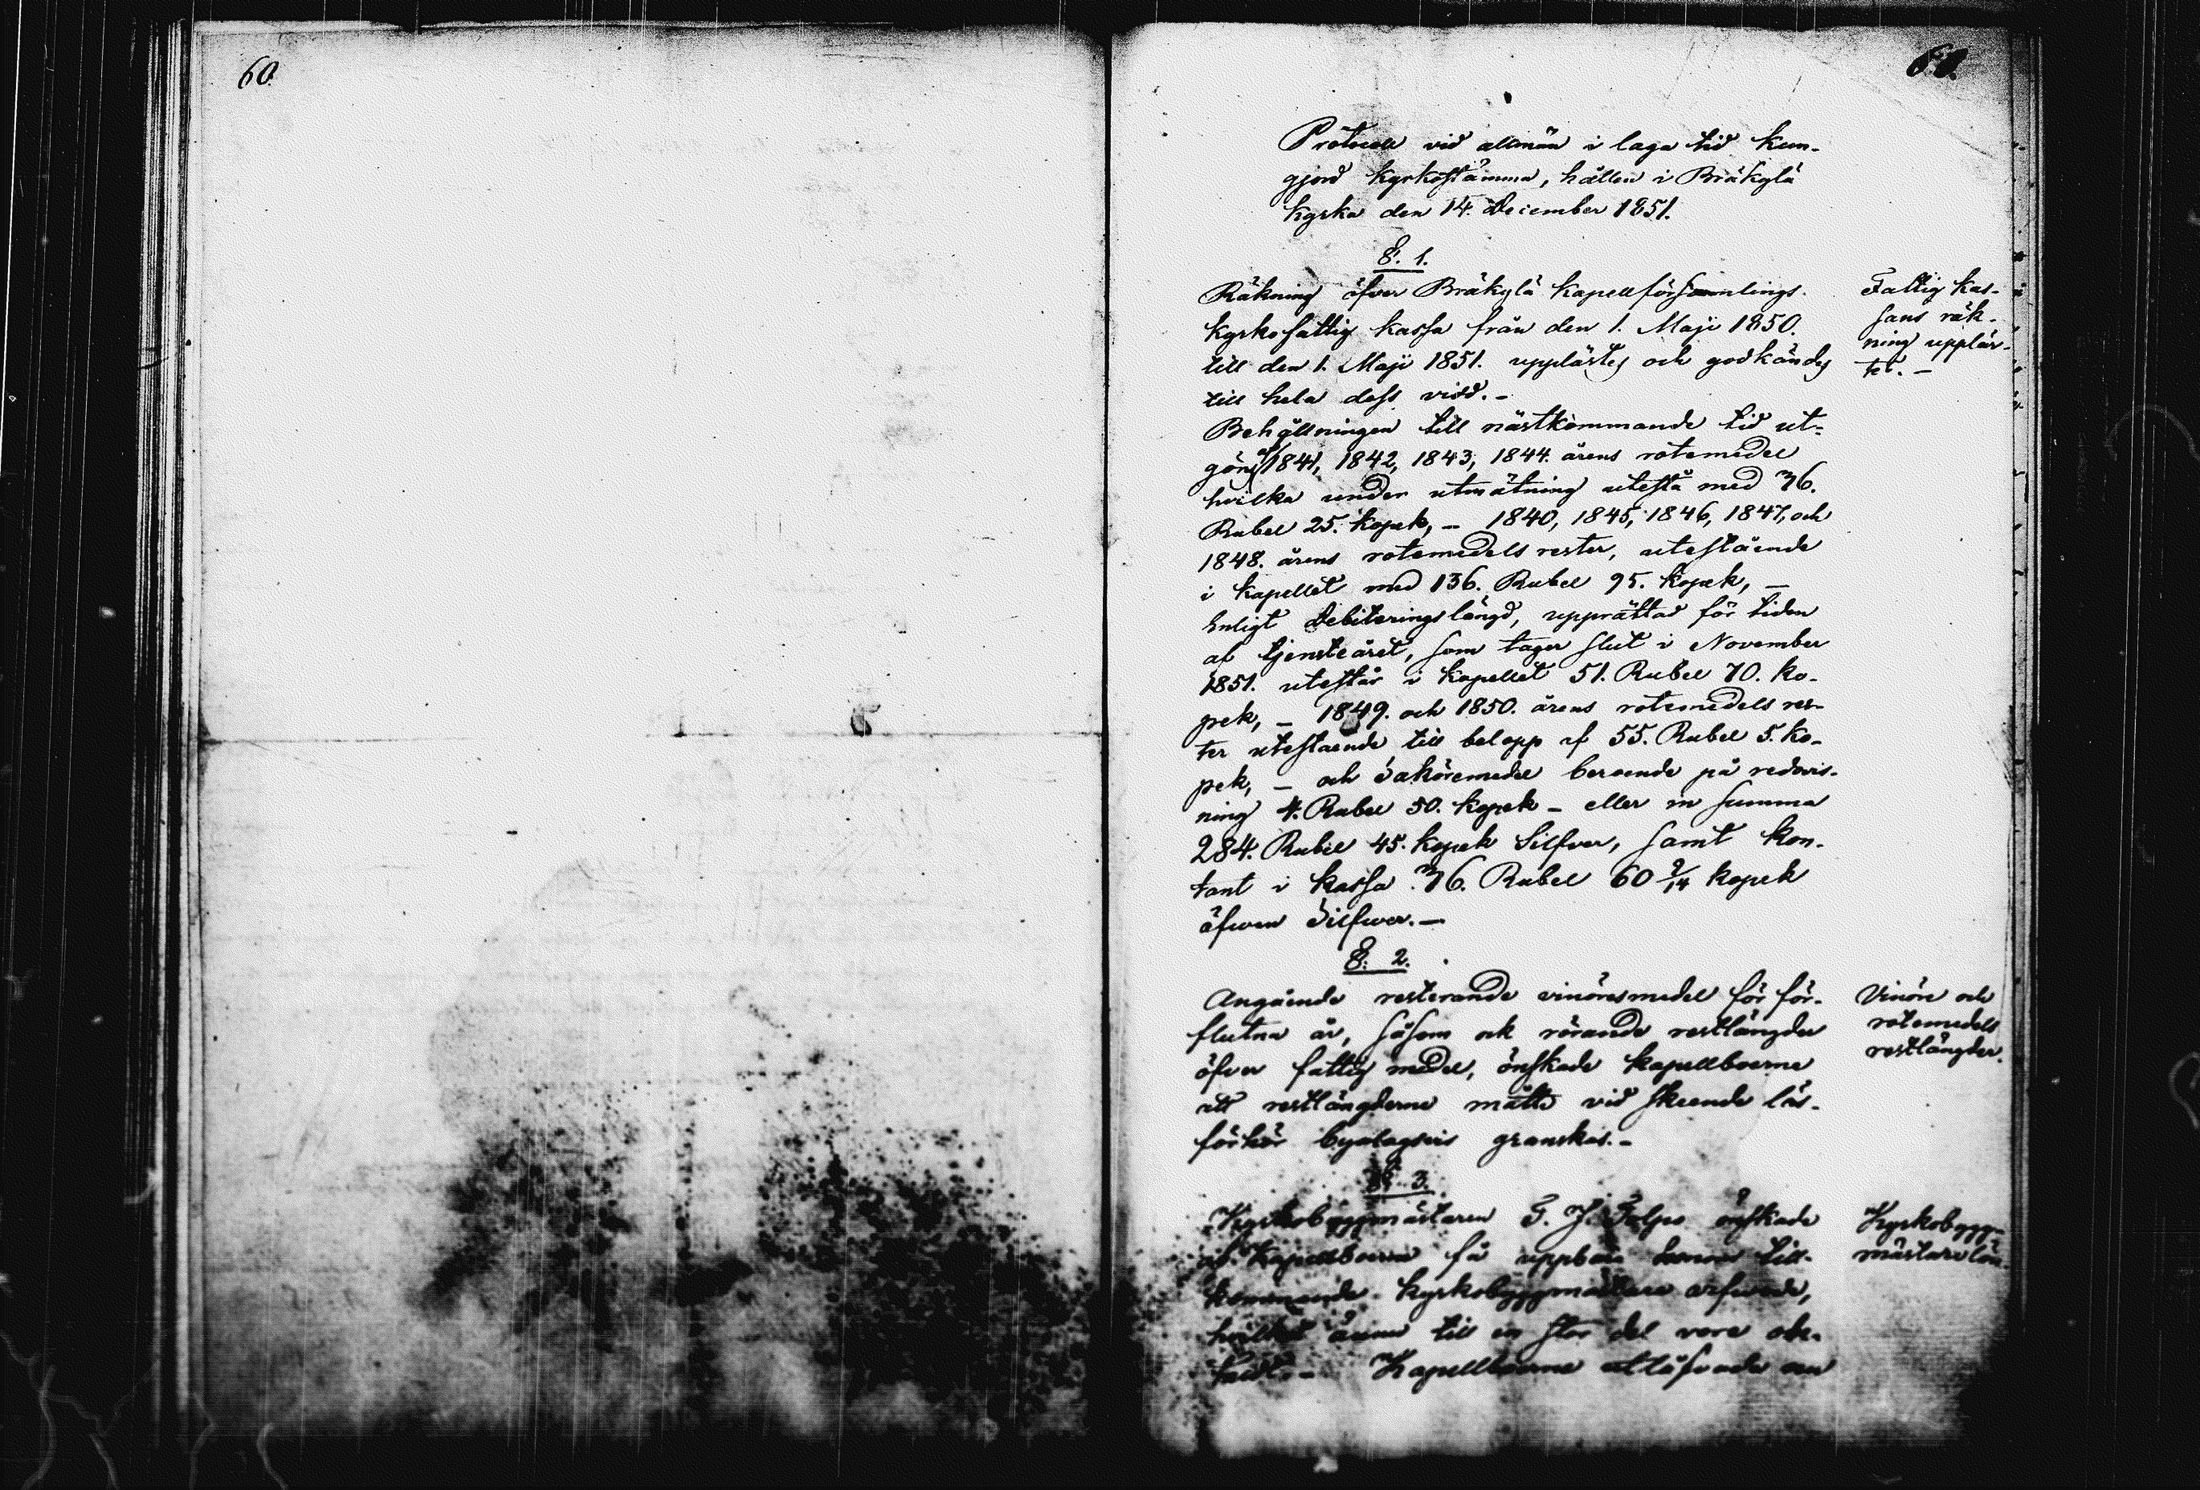 60.
Protocoll vid allmän i laga tid kun-
gjord kyrkostämma, hållen i Bräkylä
kyrka den 14. December 1851.
§. 1.
Räkning öfver Bräkylä kapellförsamlings
kyrkofattig kassa från den 1. Maji 1850.
till den 1. Maji 1851. upplästes och godkändes
till hela dess vidd. -
Fattig kas-
sans räk-
ning uppläs-
tes. -
Behållningen till nästkommande tid ut-
göres af 1841, 1842, 1843, 1844. årens rotemedel
hvilka under utmätning utestå med 36.
Rubel 25. kopek, - 1840, 1845, 1846, 1847, och
1848. årens rotemedels rester, utestående
i kapellet med 136. Rubel 95. kopek, -
Enligt Debiteringslängd, upprättad för tiden
af tjensteåret, som tager slut i November
1851. utestår i kapellet 51. Rubel 70. ko-
pek, - 1849. och 1850. årens rotemedels res-
ter utestående till belopp af 55. Rubel 5. ko-
pek, - och Saköremedel beroende på redovis-
ning 4. Rubel 50. kopek - eller in summa
284. Rubel 45. kopek Silfver, samt kon-
tant i kassa 36. Rubel 60 9/14 kopek
äfven Silfver. -
§. 2.
Angående resterande vinöresmedel för för-
flutna år, såsom ock rörande restlängder
öfver fattig medel, önskade kapellboerne
att restlängderne måtte vid skeende läs-
förhör byalagsvis granskas. -
Vinöre och
rotemedels
restlängder.
§. 3.
Kyrkobyggmästaren önskade
af kapellboerne få uppbära honom till-
kommande kyrkobyggmästare arfvode,
hvilket ännu till en stor del vore
Kapellboerne
Kyrkobygg-
mästare lön.